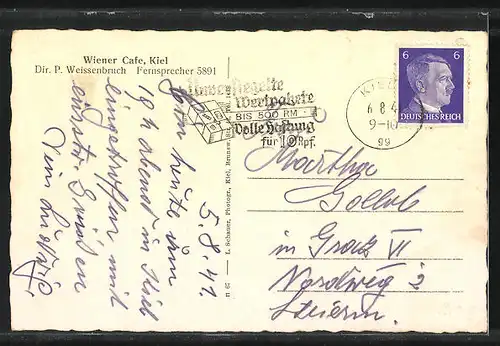 Wiener Cafe, Kiel
Dir. P. Weissenbruch Fernsprecher 5891
Unversiegelte
Wertpakete
BIS 500 RM
Volle Haftung
für 10 Rpf.
KIEL
6.8.4
9-10
99
6 6
DEUTSCHES REICH
L. Schaner, Photogr., Kiel
5.8.41.
bin heute um
18 h abends in Kiel
eingetroffen mit
Grüssen
Dein
Martha
Gollob
in Graz VI
Nordweg 2
Steierm.